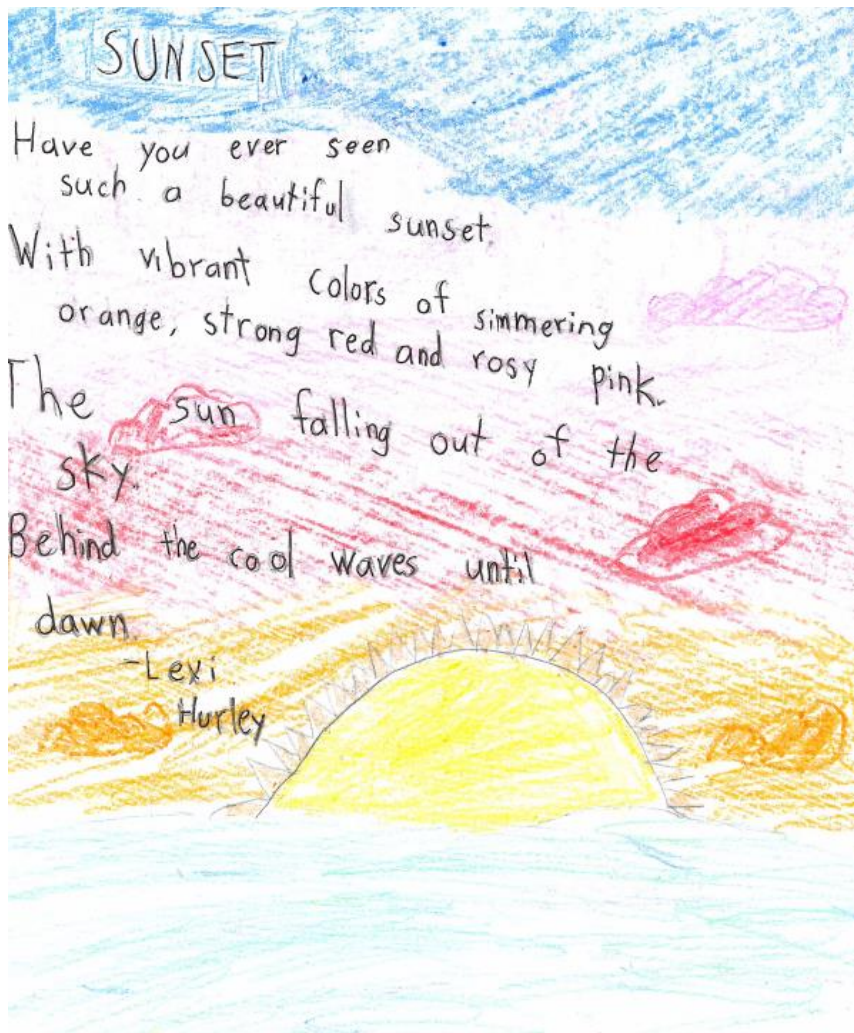 SUNSET
Have you ever seen
such a beautiful sunset.
With vibrant colors of simmering
orange, strong red and rosy pink.
The sun falling out of the
sky.
Behind the cool waves until
dawn.
-Lexi
Hurley